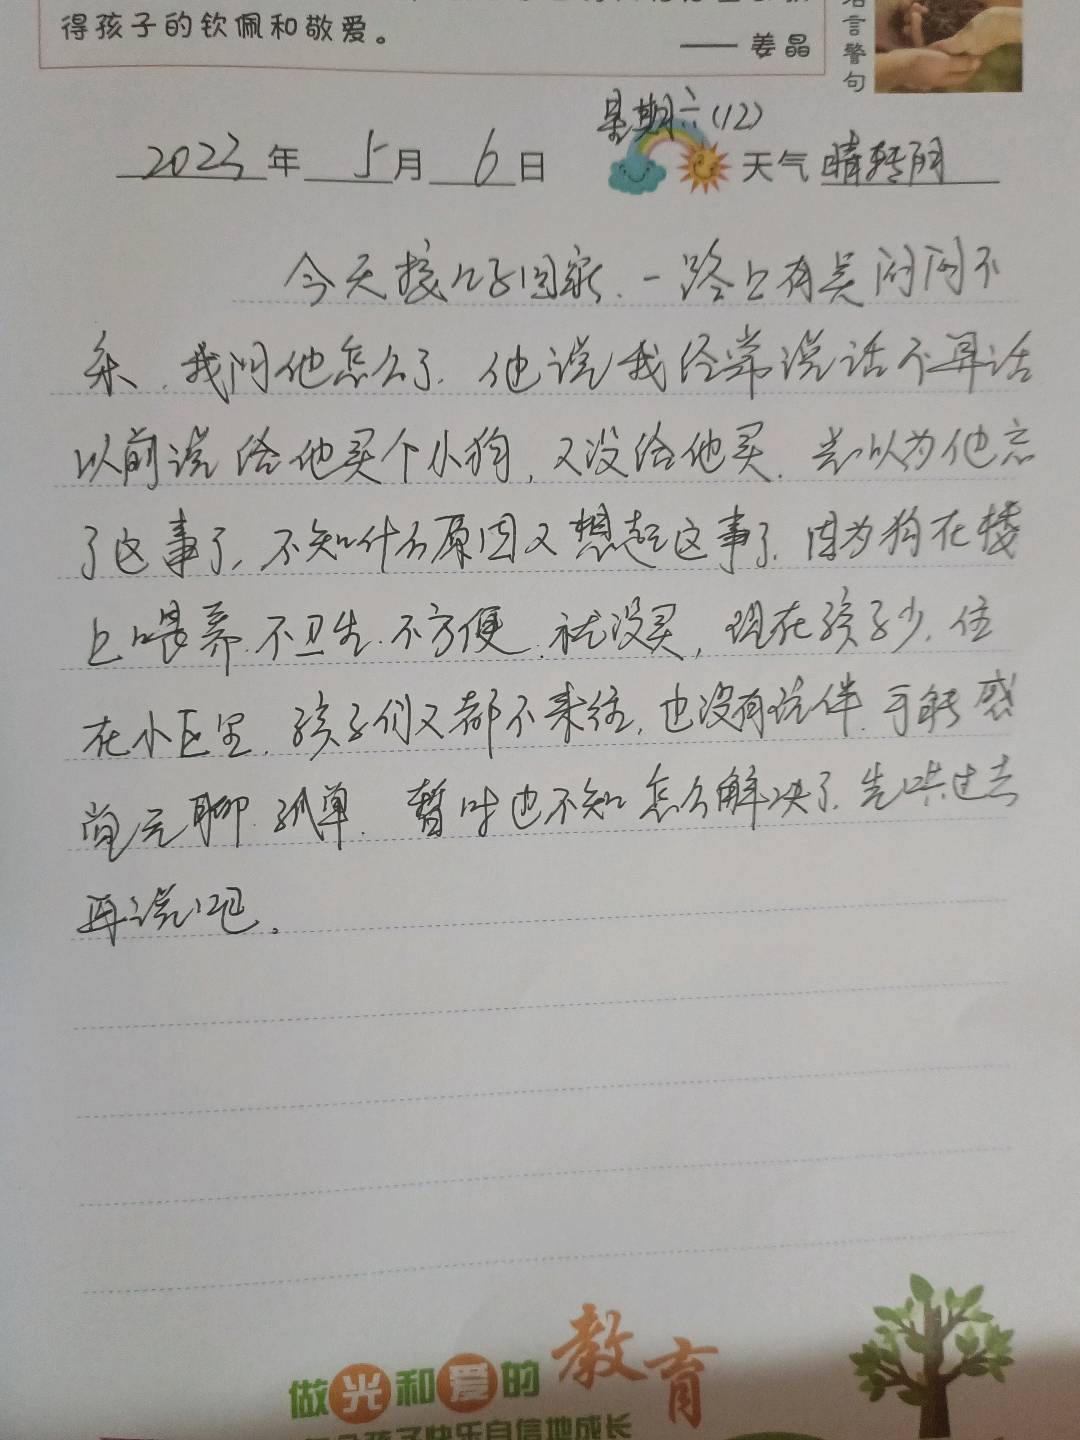 得孩子的钦佩和敬爱。
—— 姜晶
名言警句
星期六(12)
2023年 5月 6日 天气 晴转阴
今天接儿子回家.一路上有是闷闷不
乐.我问他怎么了.他说我经常说话不算话
以前说给他买个小狗,又没给他买.尝以为他忘
了这事了,不知什么原因又想起这事了.因为狗在楼
上喂养.不卫生.不方便.就没买,现在孩子少.住
在小区里.孩子们又都不来往.也没有玩伴.可能感
觉无聊.孤单.暂时也不知怎么解决了.先哄过去
再说吧。
做光和爱的教育
孩子快乐自信地成长